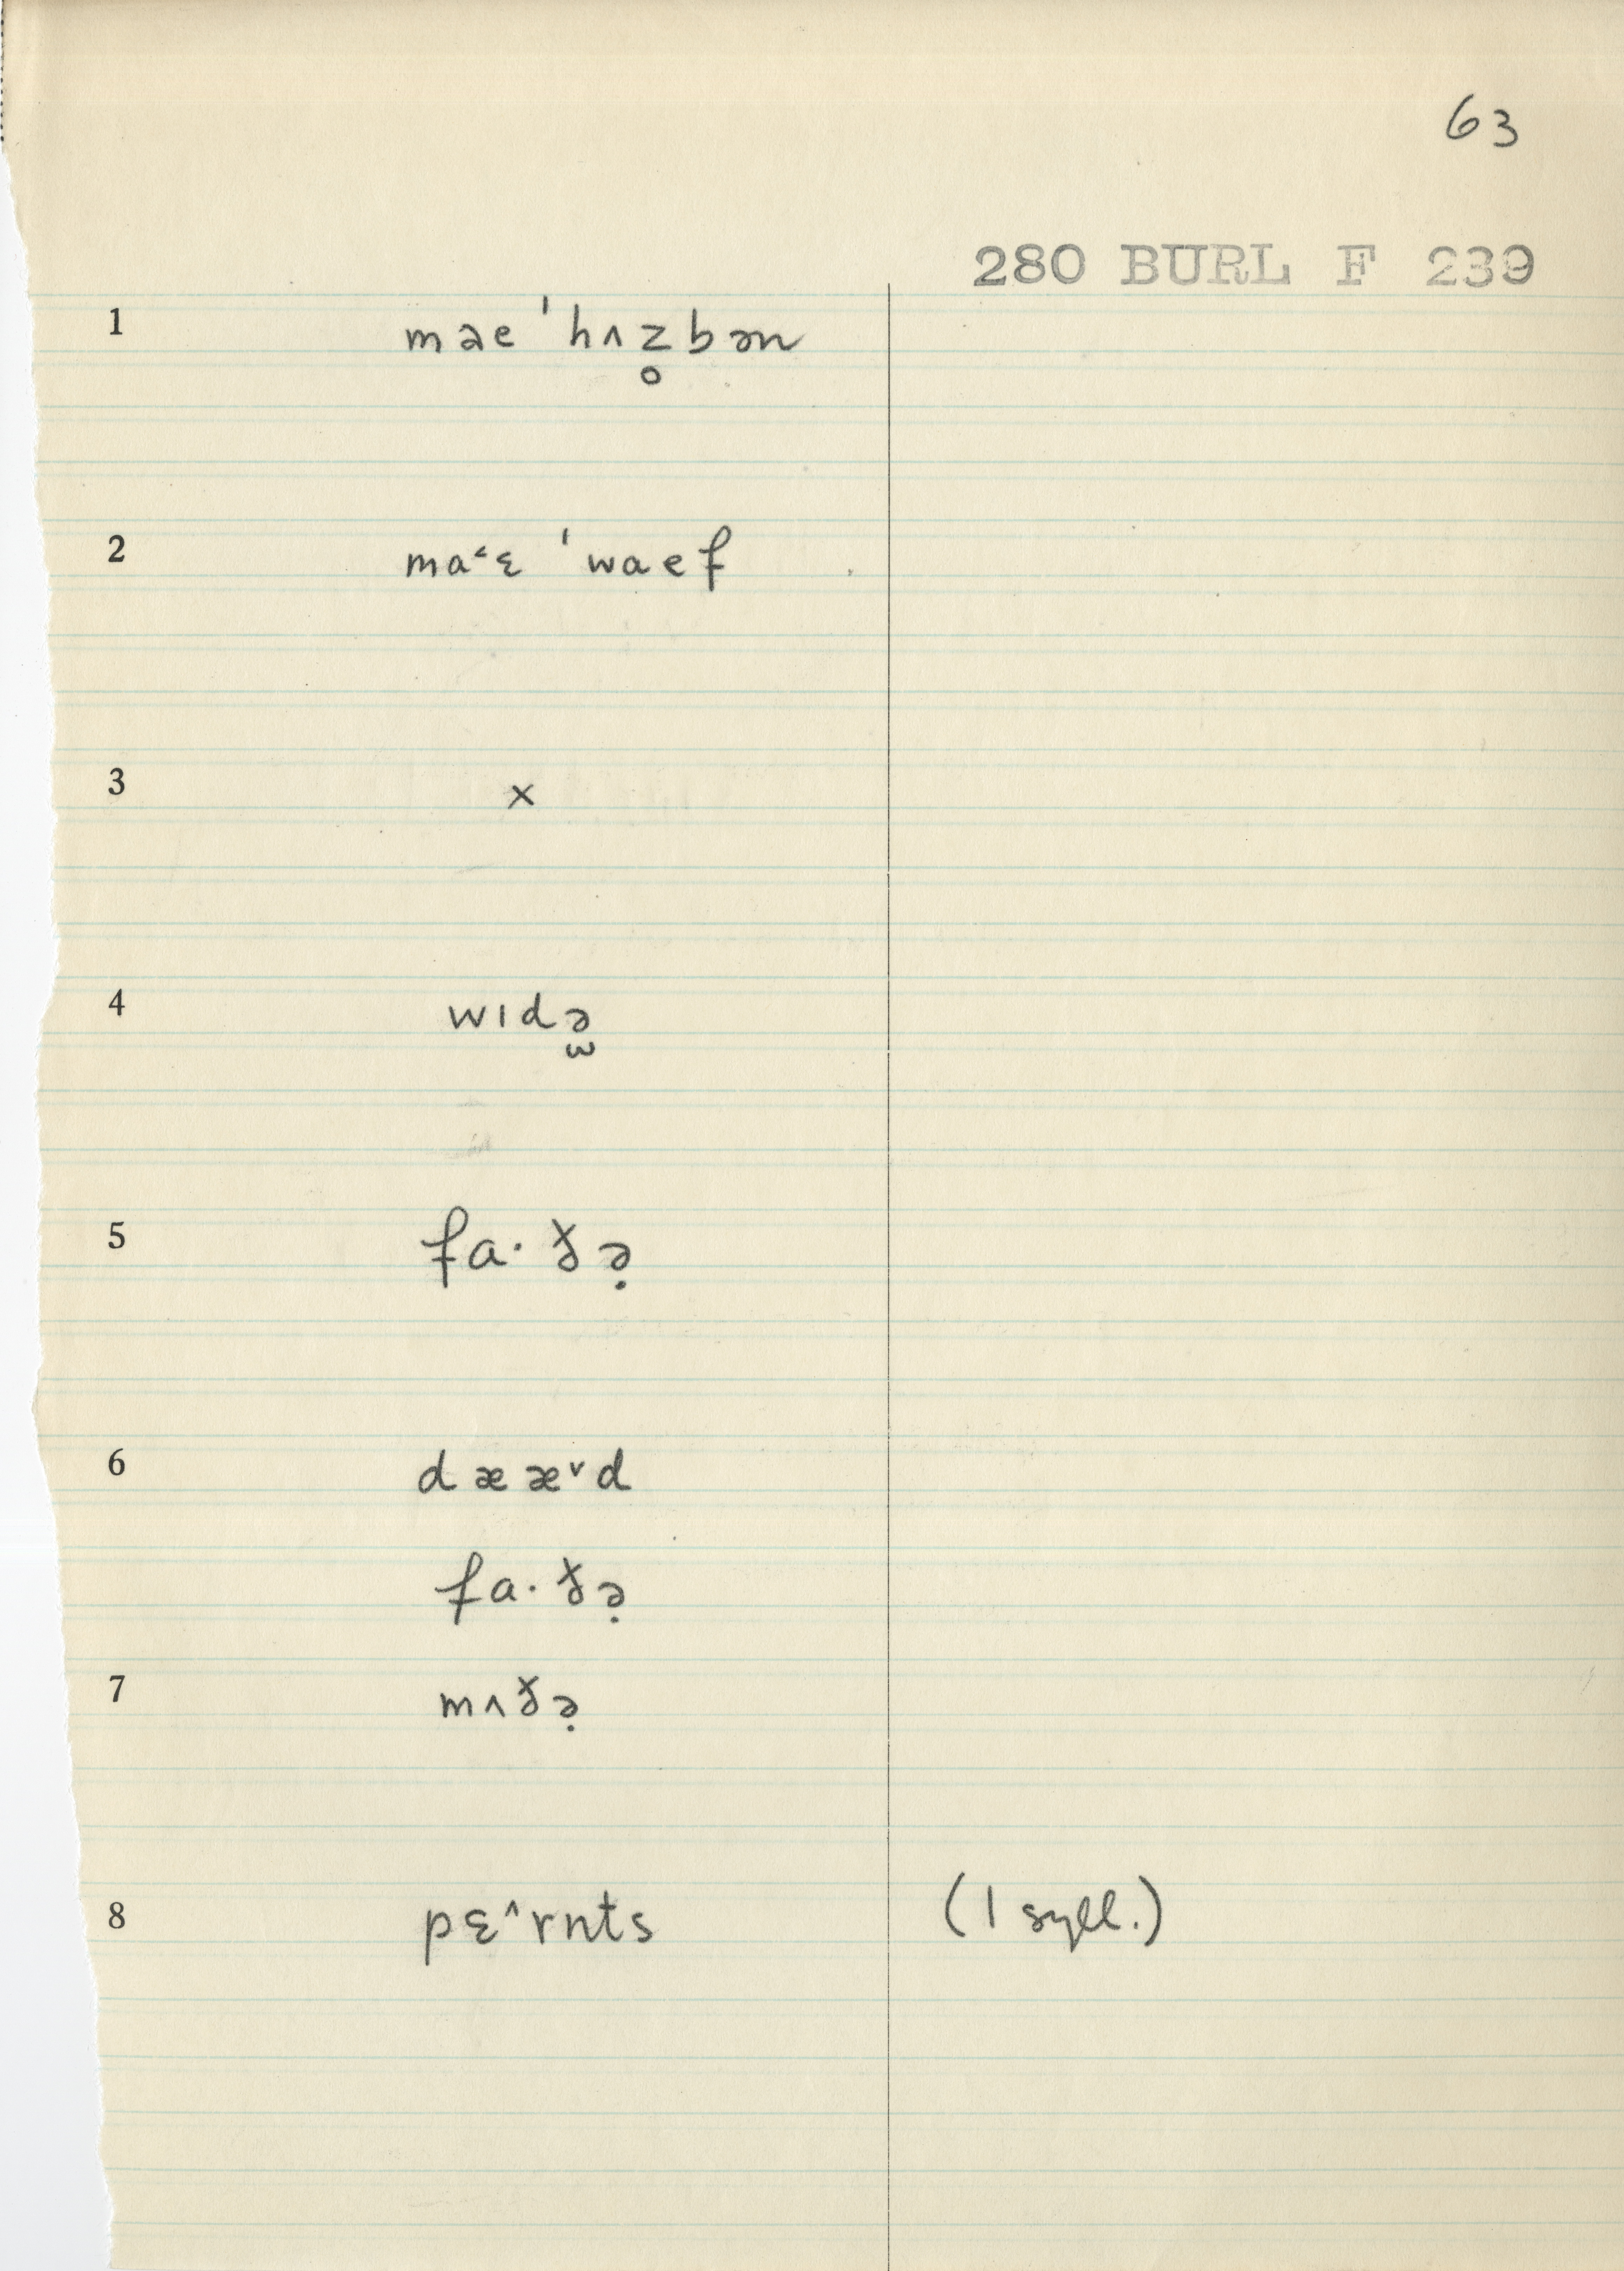 63
280 BURL F 239
1 mae ˈhʌz̥bən
2 ma˂ɛ ˈwaef
3 ×
4 wɪdə̫
5 fa·ðə̣
6 dææ˅d
fa·ðə̣
7 mʌðə̣
8 pɛ˄rnts (1 syll.)